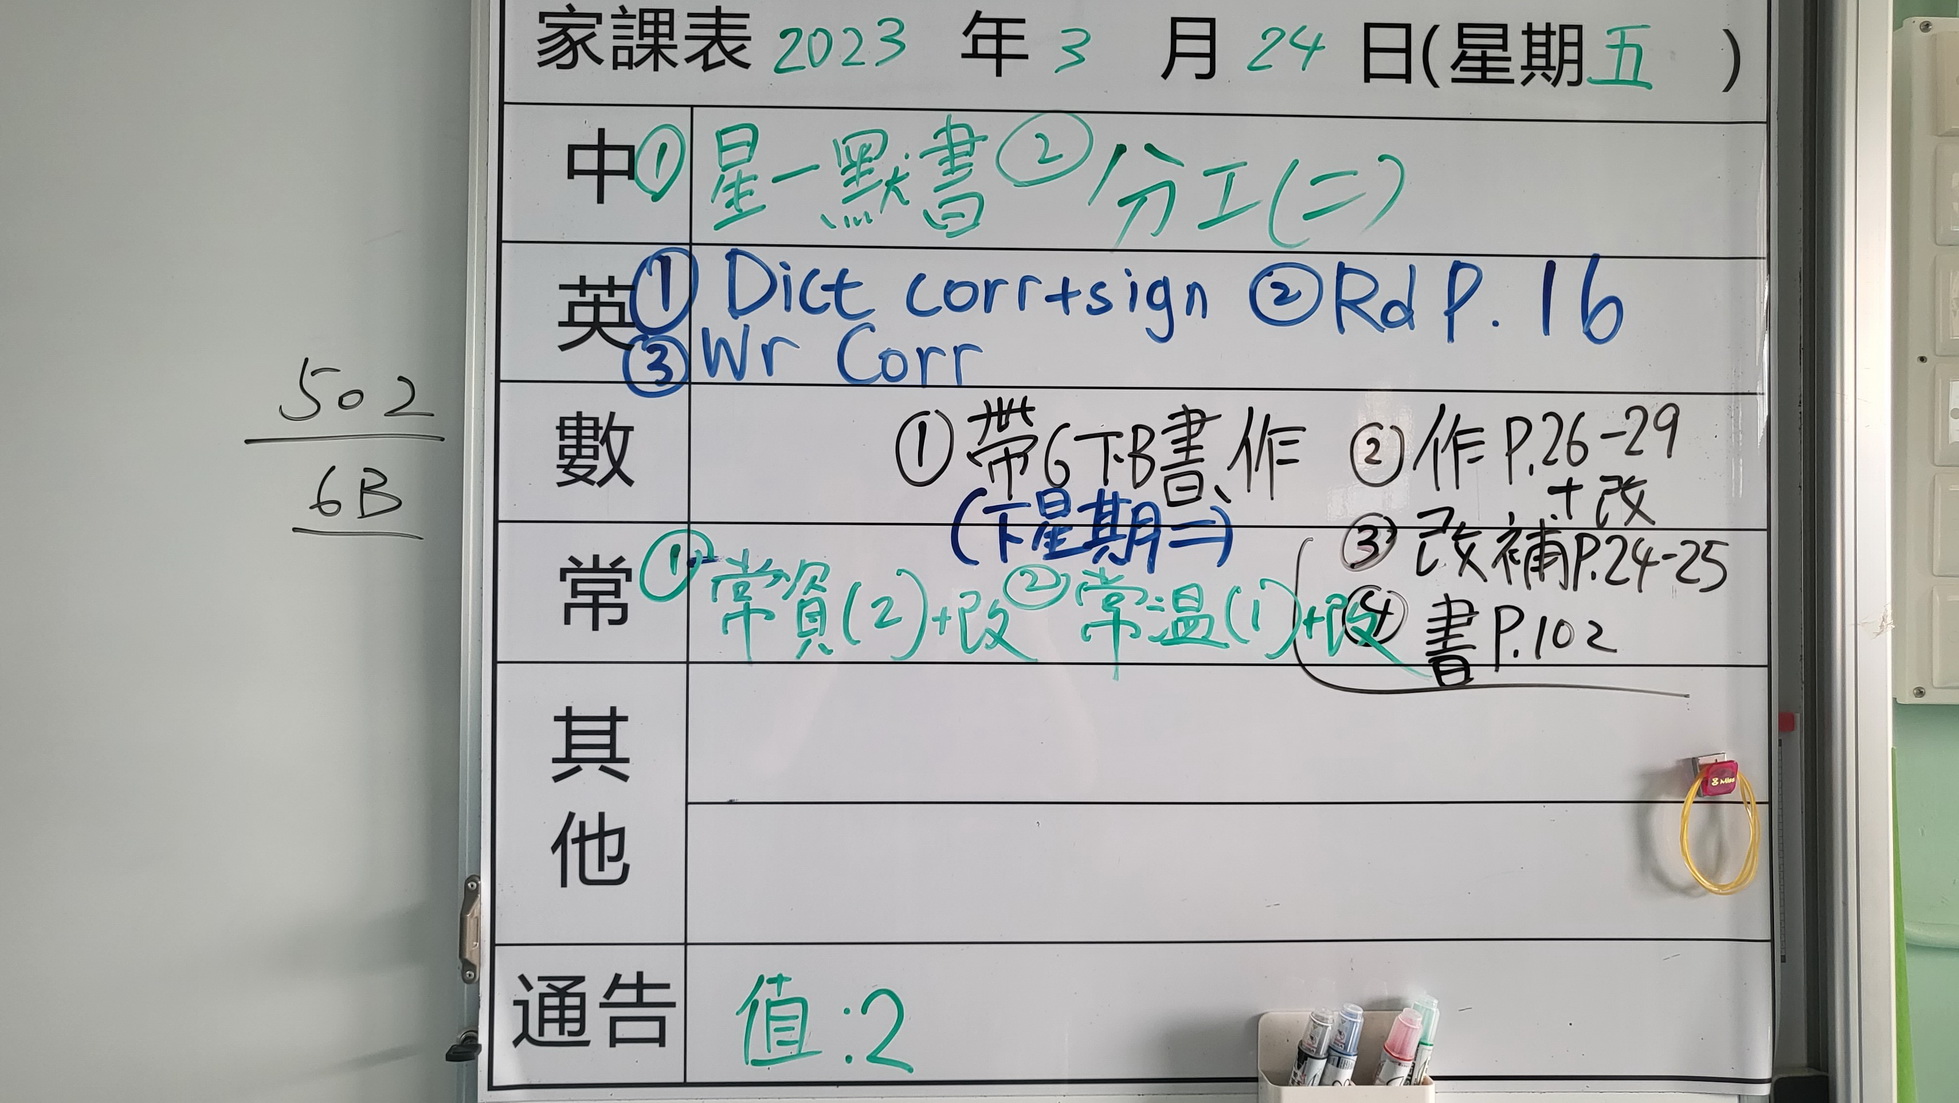 家課表 2023 年 3 月 24 日(星期五 )
中 ① 星一默書 ② 分工(二)
英 ① Dict corr+sign ② Rd P. 16
③ Wr Corr
502
6B
數 ① 帶6下B書、作 ② 作 P.26-29
+改
(下星期二)
③ 改補P.24-25
④ 書 P.102
常 ① 常資(2)+改 ② 常温(1)+改
其他
通告 值:2